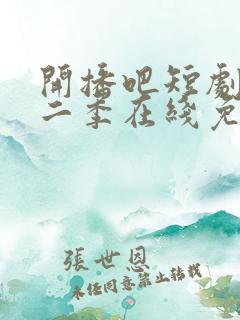 開播吧短劇
二季在綫免
張世恩
未经同意禁止转载